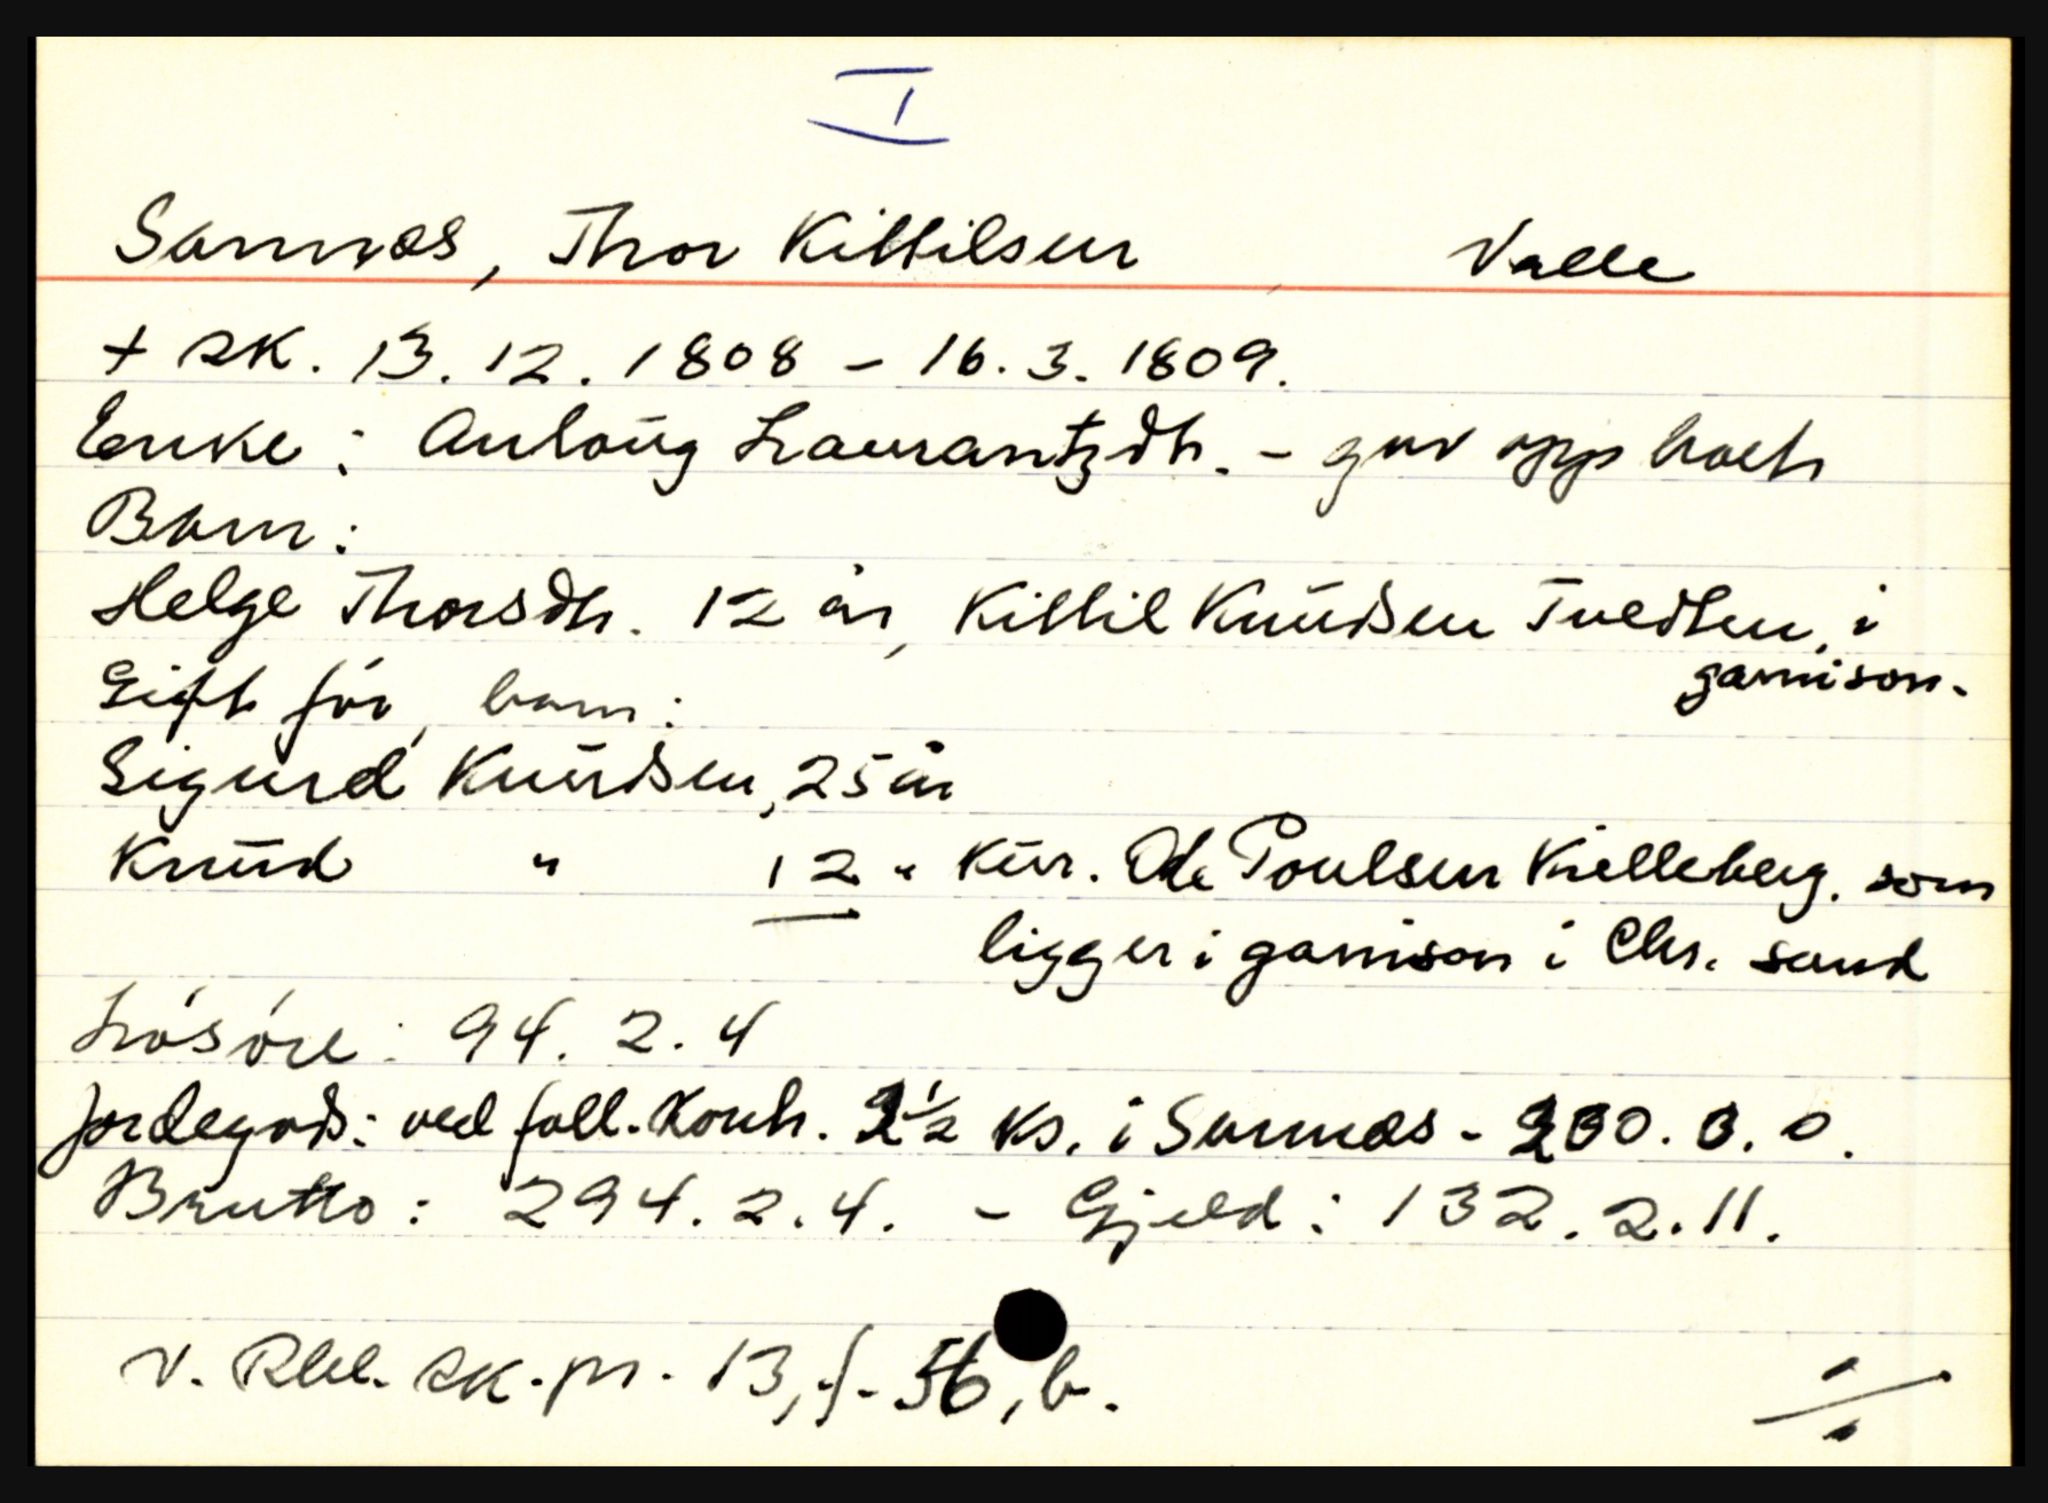 I
Sannæs, Thor Kittilsen Valle
+ sk. 13.12.1808 - 16.3.1809.
Enke: Anlaüg Laurantzdtr. - gav opp boets
Barn:
Helge Thorsdtr. 12 år, Kittil Knüdsen Tvedten, i
garnison.
Gift før, barn:
Sigurd Knüdsen, 25 år
Knüd " 12 " Kür. Ole Poulsen Kielleberg. som
ligger i garnison i Chr. sand
Løsøre: 94. 2. 4
Jordegods: ved foll. Kontr. 2½ ks. i Sannæs - 200. 0. 0.
Brutto: 294. 2. 4. - Gjeld: 132. 2. 11.
V. Rbl. sk. pr. 13, f. 56, b.